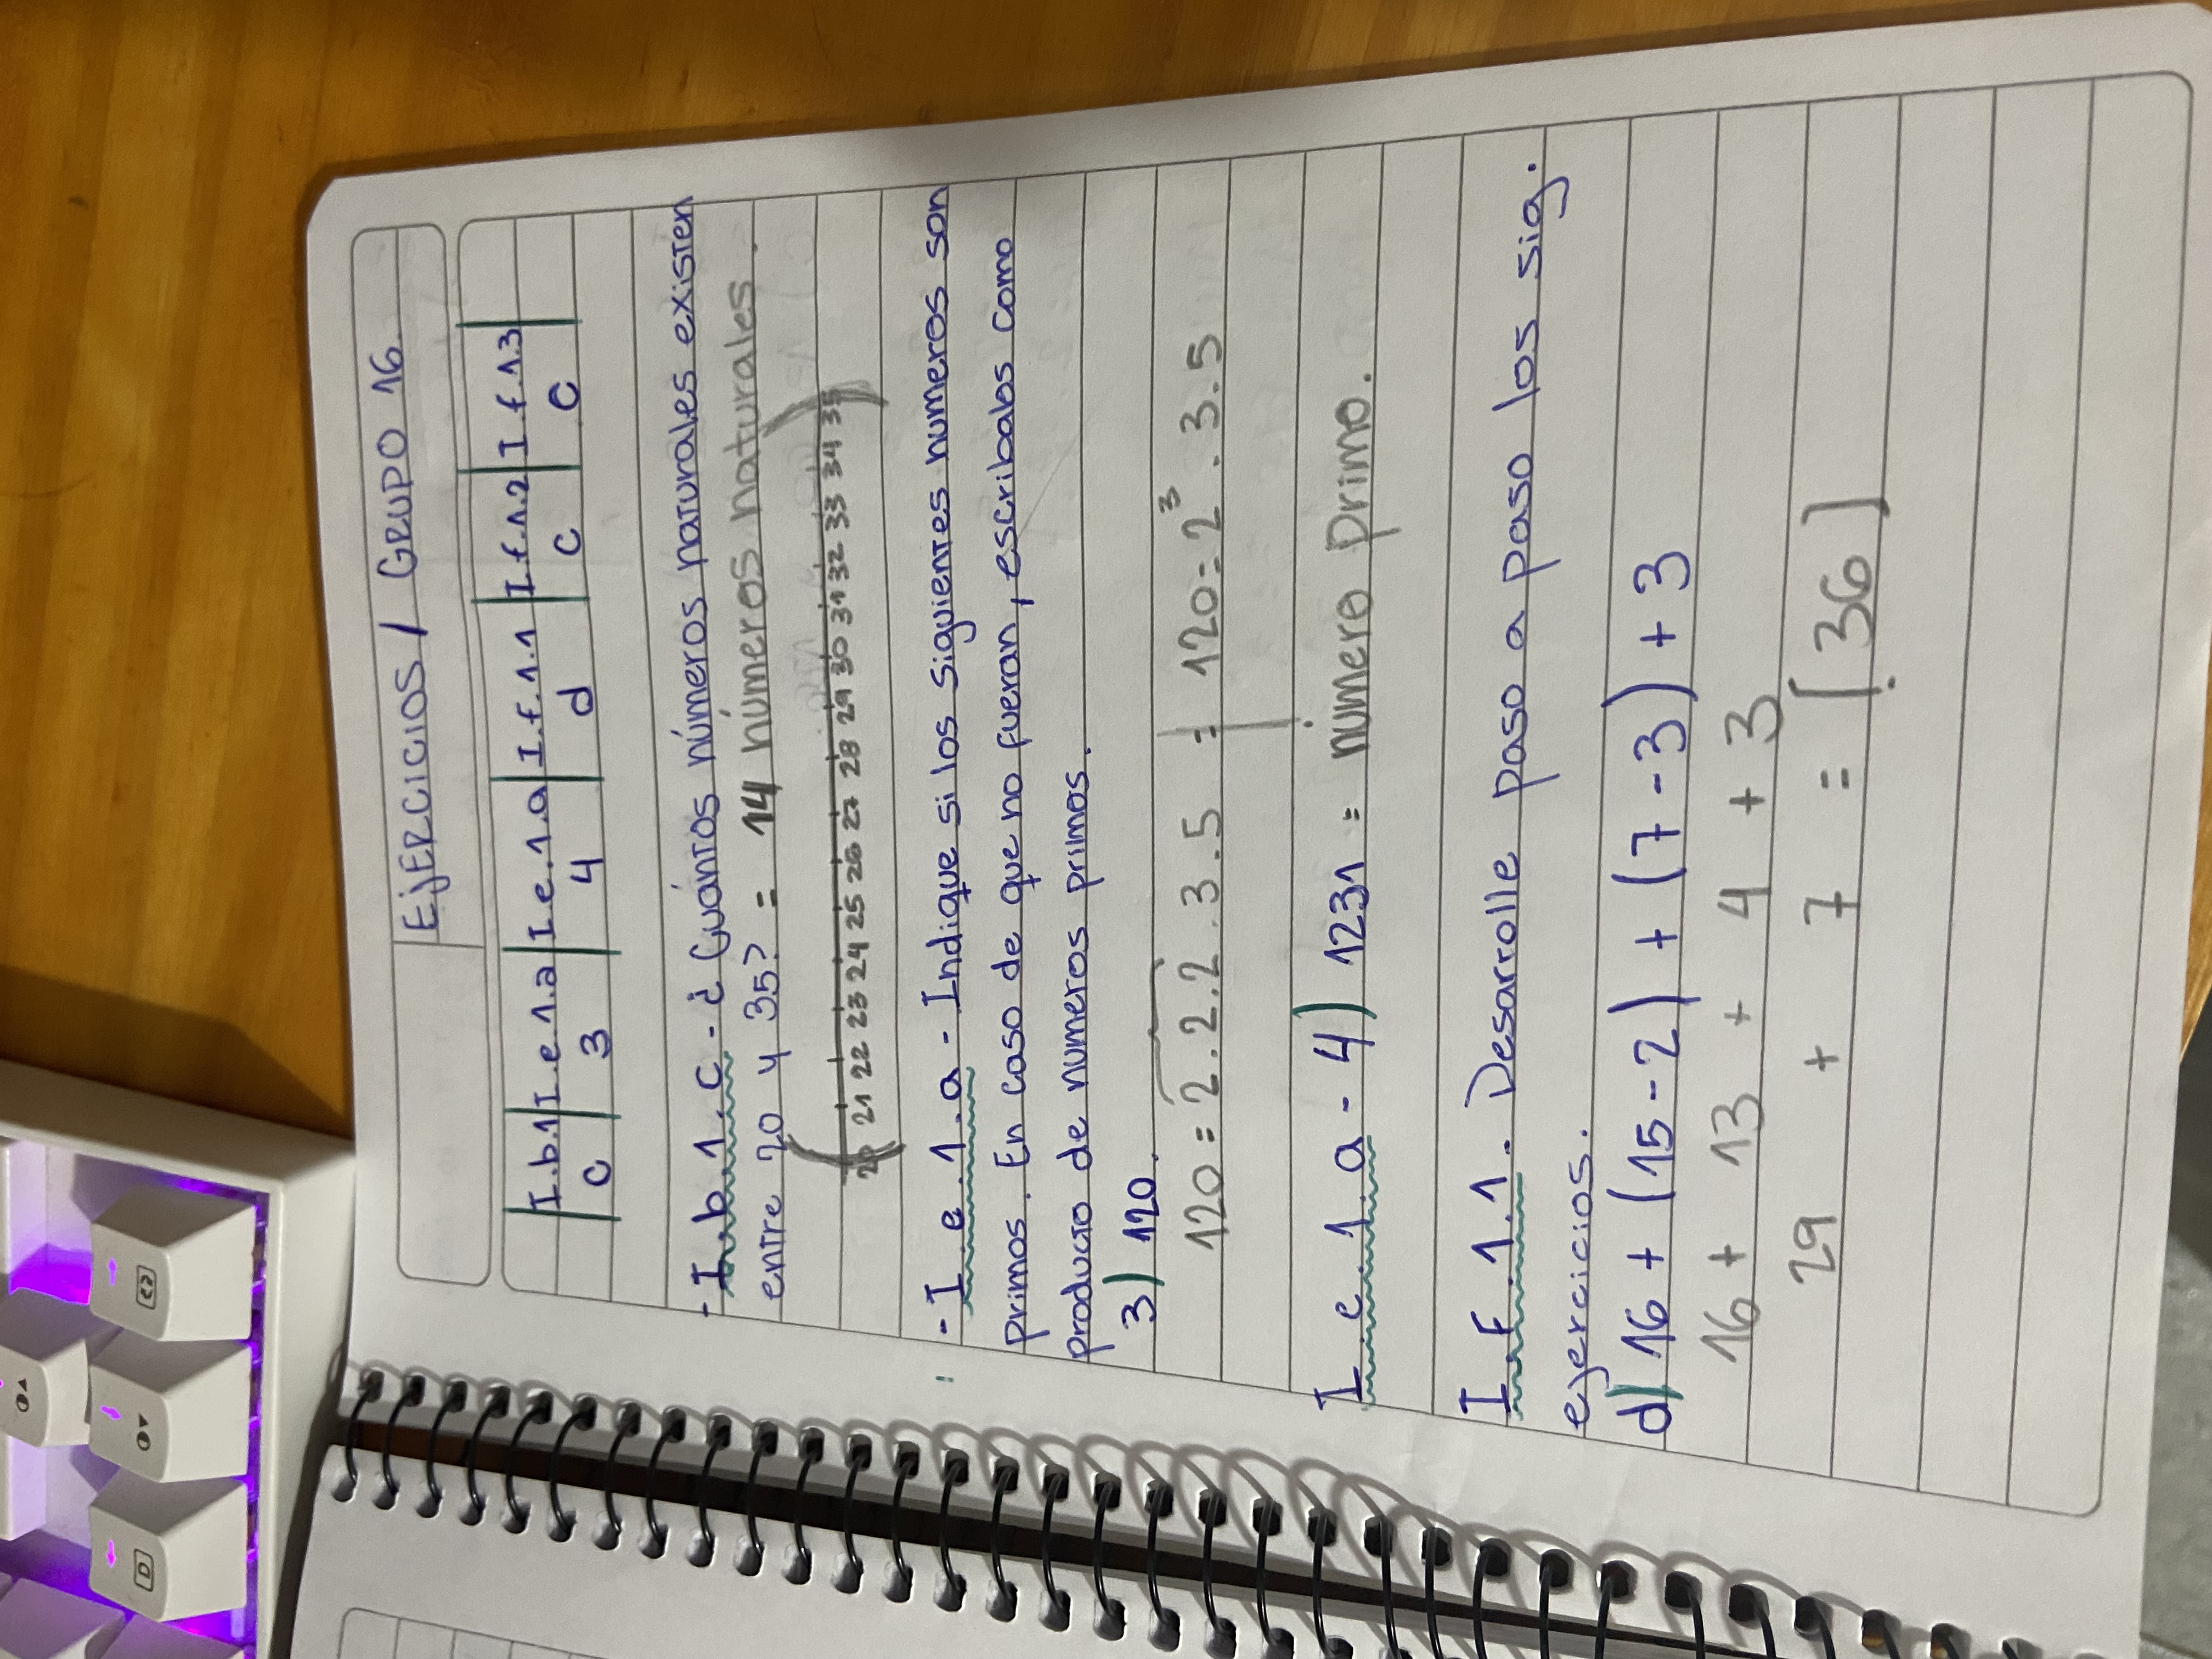 D
EJERCICIOS / GRUPO 16
I.b.1 I.e.1.a I.e.1.a I.f.1.1 I.f.1.2 I.f.1.3
c 3 4 d c c
- I.b.1.c - ¿Cuántos números naturales existen
entre 20 y 35? = 14 números naturales.
20 21 22 23 24 25 26 27 28 29 30 31 32 33 34 35
- I.e.1.a - Indique si los siguientes numeros son
primos. En caso de que no fueran, escribalos como
producto de numeros primos.
3) 120.
120 = 2.2.2.3.5 = 120 = 2³.3.5
I.e.1.a - 4) 1231 = número primo.
I.F.1.1. Desarrolle paso a paso los sig.
ejercicios.
d) 16 + (15 - 2) + (7 - 3) + 3
16 + 13 + 4 + 3
29 + 7 = [36]